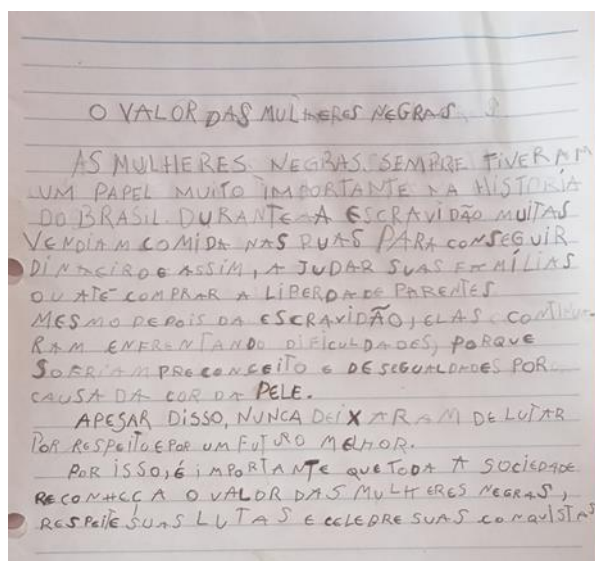 O VALOR DAS MULHERES NEGRAS.
AS MULHERES NEGRAS SEMPRE TIVERAM
UM PAPEL MUITO IMPORTANTE NA HISTÓRIA
DO BRASIL. DURANTE A ESCRAVIDÃO MUITAS
VENDIAM COMIDA NAS RUAS PARA CONSEGUIR
DINHEIRO E ASSIM, AJUDAR SUAS FAMÍLIAS
OU ATÉ COMPRAR A LIBERDADE PARENTES
MESMO DEPOIS DA ESCRAVIDÃO, ELAS CONTINU
RAM ENFRENTANDO DIFICULDADES, PORQUE
SOFRIAM PRECONCEITO E DESEGUALDADES POR
CAUSA DA COR DA PELE.
APESAR DISSO, NUNCA DEIXARAM DE LUTAR
POR RESPEITO E POR UM FUTURO MELHOR.
POR ISSO, É IMPORTANTE QUE TODA A SOCIEDADE
RECONHEÇA O VALOR DAS MULHERES NEGRAS,
RESPEITE SUAS LUTAS E CELEBRE SUAS CONQUISTAS